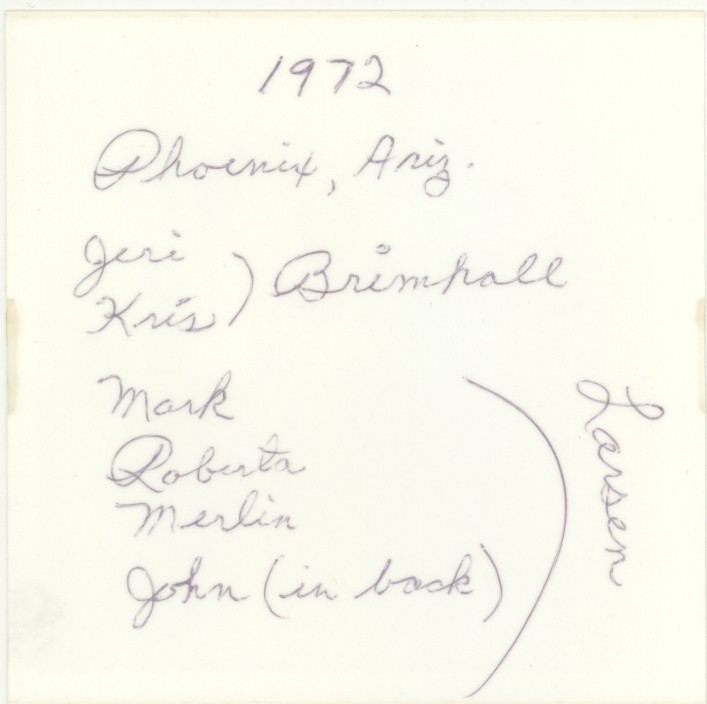 1972
Phoenix, Ariz.
Jeri
Kris ) Brimhall
Mark
Roberta
Merlin
John (in back) ) Larsen